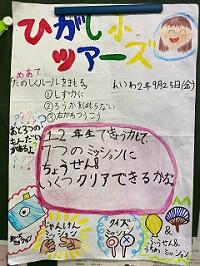 ひがし小
ツアーズ
めあて
たのしくルールをまもろう
れいわ2年9月25日(金)
①しずかに
②ろうかをはしらない
③右がわつうこう
1,2年生できょう力して、
7つのミッションに
ちょうせん!!
いくつクリアできるかな
じゃんけん
ミッション
クイズ
ミッション
&
ふうせん&
うちわミッション